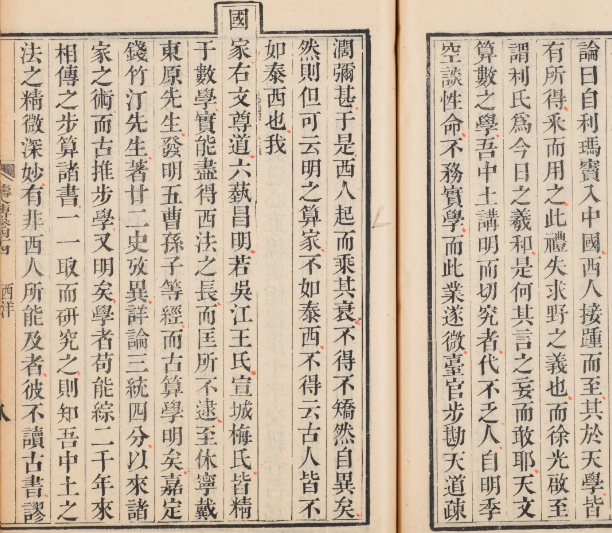 論曰自利瑪竇入中國西人接踵而至其於天學皆
有所得采而用之此禮失求野之義也而徐光啟至
謂利氏爲今日之羲和是何其言之妄而敢耶天文
算數之學吾中土講明而切究者代不乏人自明季
空談性命不務實學而此業遂微臺官步勘天道疎
濶彌甚于是西人起而乘其衰不得不矯然自異矣
然則但可云明之算家不如泰西不得云古人皆不
如泰西也我
國
家右文尊道六蓺昌明若吳江王氏宣城梅氏皆精
于數學實能盡得西法之長而匡所不逮至休寧戴
東原先生發明五曹孫子等經而古算學明矣嘉定
錢竹汀先生著廿二史攷異詳論三統四分以來諸
家之術而古推步學又明矣學者苟能綜二千年來
相傳之步算諸書一一取而研究之則知吾中土之
法之精微深妙有非西人所能及者彼不讀古書謬
西洋